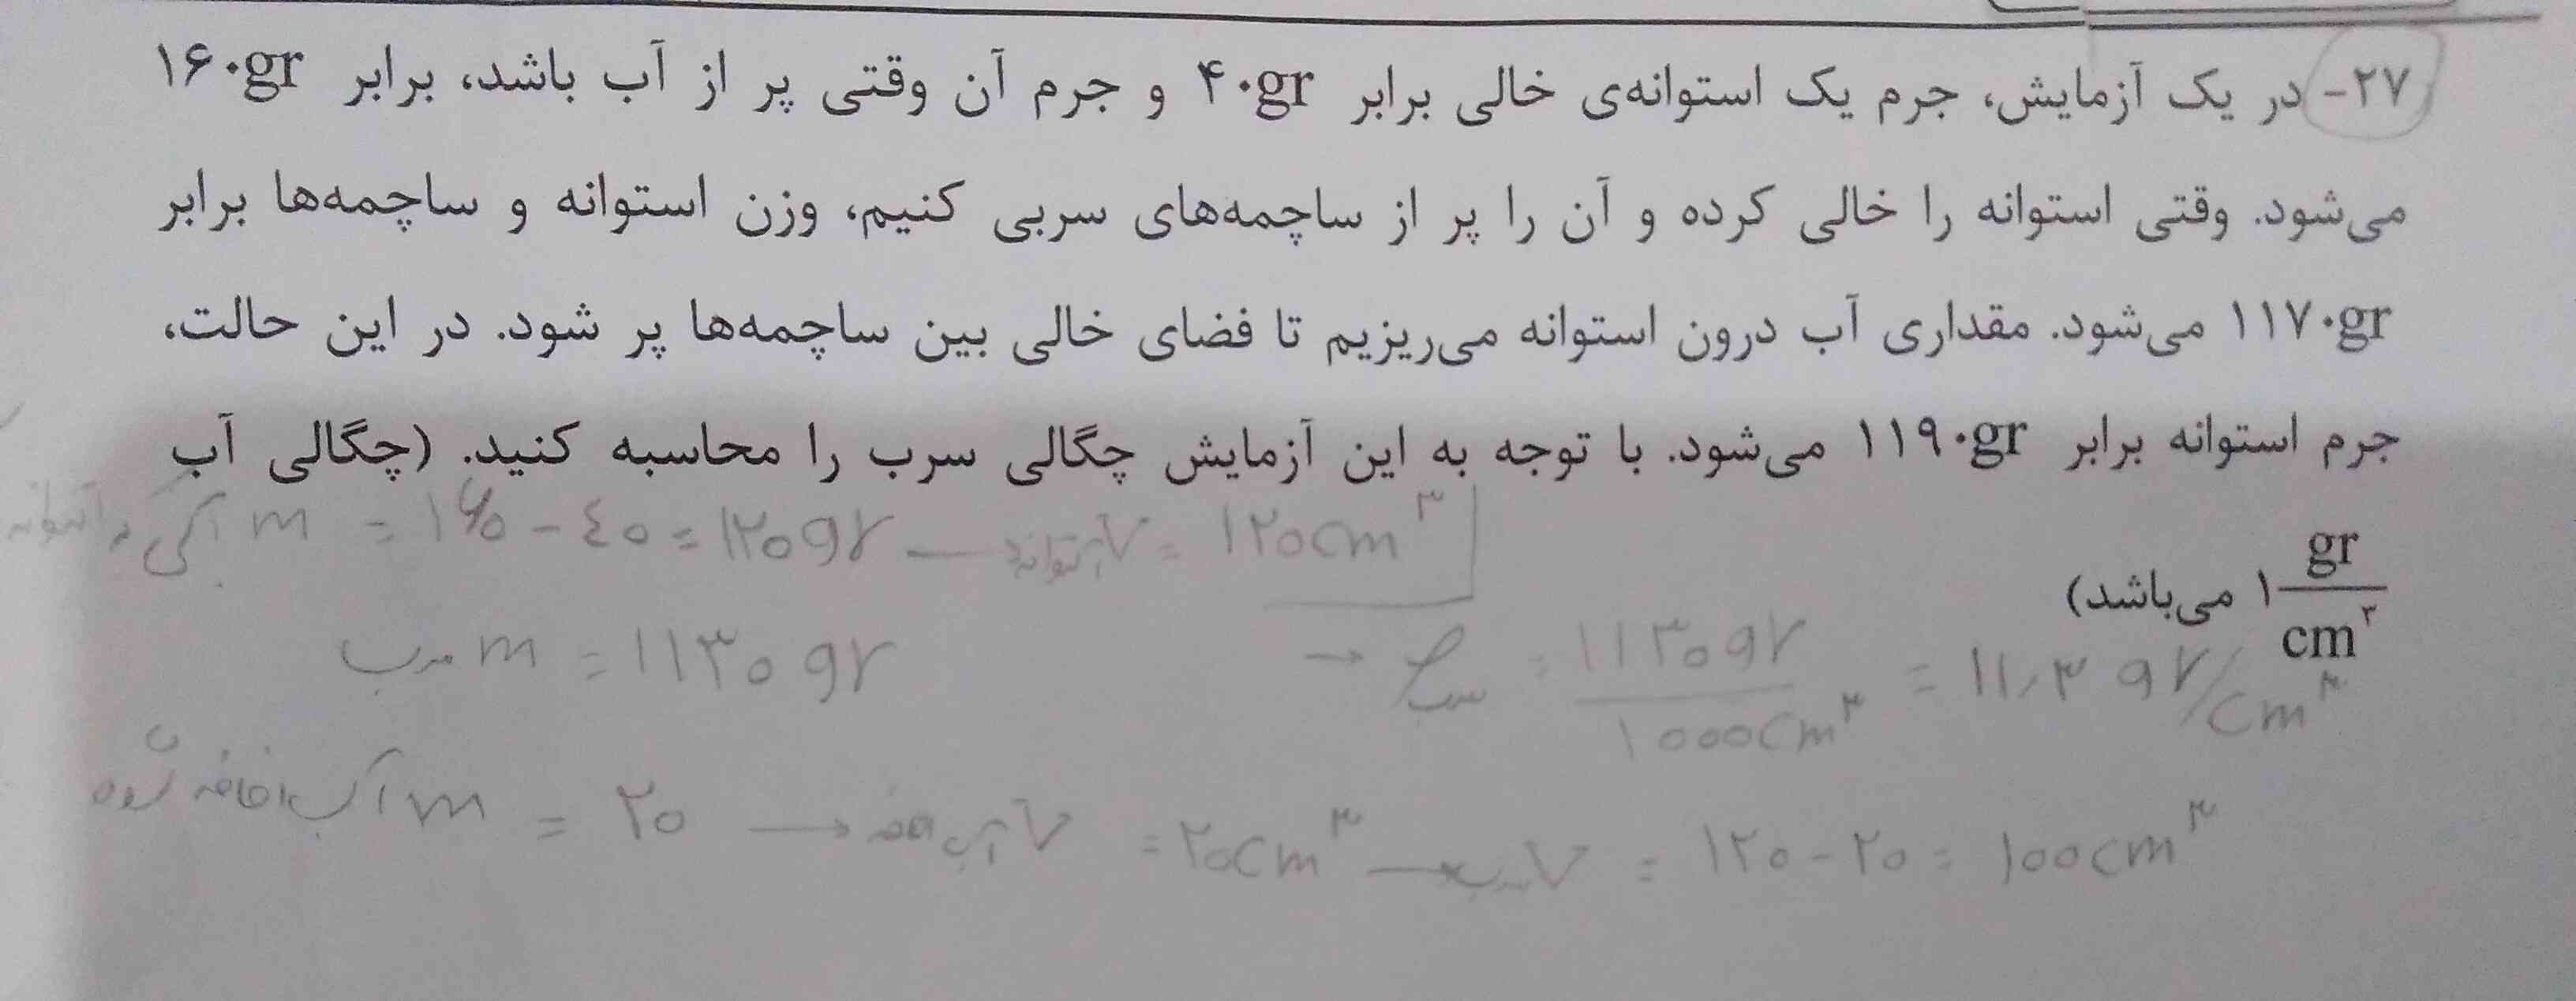 ۲۷- در یک آزمایش، جرم یک استوانه‌ی خالی برابر ۴۰gr و جرم آن وقتی پر از آب باشد، برابر ۱۶۰gr
می‌شود. وقتی استوانه را خالی کرده و آن را پر از ساچمه‌های سربی کنیم، وزن استوانه و ساچمه‌ها برابر
۱۱۷۰gr می‌شود. مقداری آب درون استوانه می‌ریزیم تا فضای خالی بین ساچمه‌ها پر شود. در این حالت،
جرم استوانه برابر ۱۱۹۰gr می‌شود. با توجه به این آزمایش چگالی سرب را محاسبه کنید. (چگالی آب
۱ gr/cm³ می‌باشد)
m = ۱۶۰ - ٤۰ = ۱۲۰gr — V استوانه = ۱۲۰cm³
m سرب = ۱۱۳۰gr → ρ سرب = ۱۱۳۰gr / ۱۰۰۰cm³ = ۱۱٫۳ gr/cm³
m آب اضافه شده = ۲۰ → V آب = ۲۰cm³ → V سرب = ۱۲۰ - ۲۰ = ۱۰۰cm³